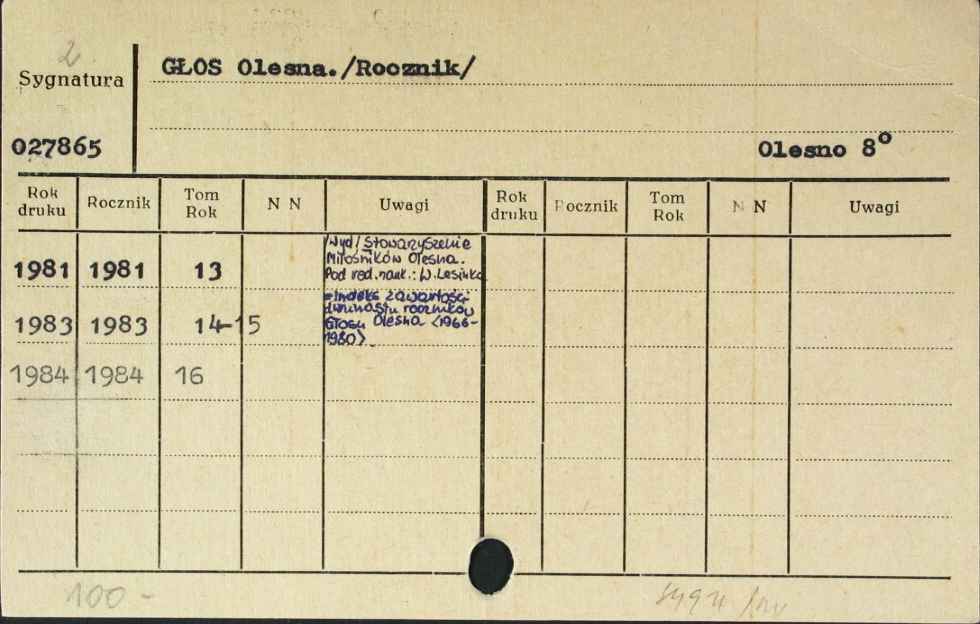 2
Sygnatura
GŁOS Olesna./Rocznik/
027865
Olesno 8°
Rok druku Rocznik Tom Rok N N Uwagi Rok druku Rocznik Tom Rok N N Uwagi
/Wyd/ Stowarzyszenie
Miłośników Olesna.
1981 1981 13 Pod red. nauk.: W. Lesiuka
=Indeks zawartości
dwunastu roczników
1983 1983 14-15 Głosu Olesna <1966-
1980>
1984 1984 16
100 -